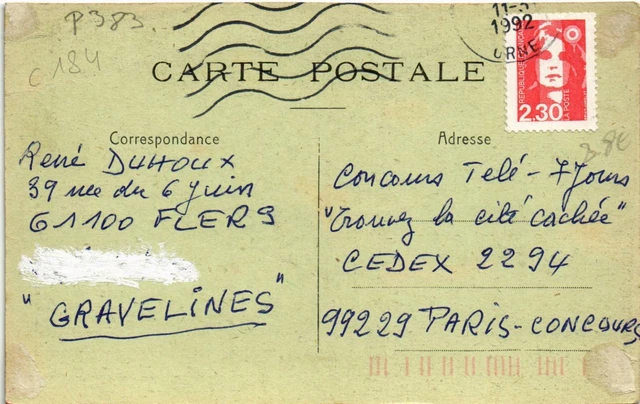 P383.
C 184
11-3
1992
ORNE
CARTE POSTALE
REPUBLIQUE FRANÇAISE
2.30
LA POSTE
Correspondance
René DUHOUX
39 rue du 6 juin
61100 FLERS
"GRAVELINES"
Adresse
Concours Télé-7 Jours
"Trouvez la cité cachée"
CEDEX 2294
99229 PARIS-CONCOURS